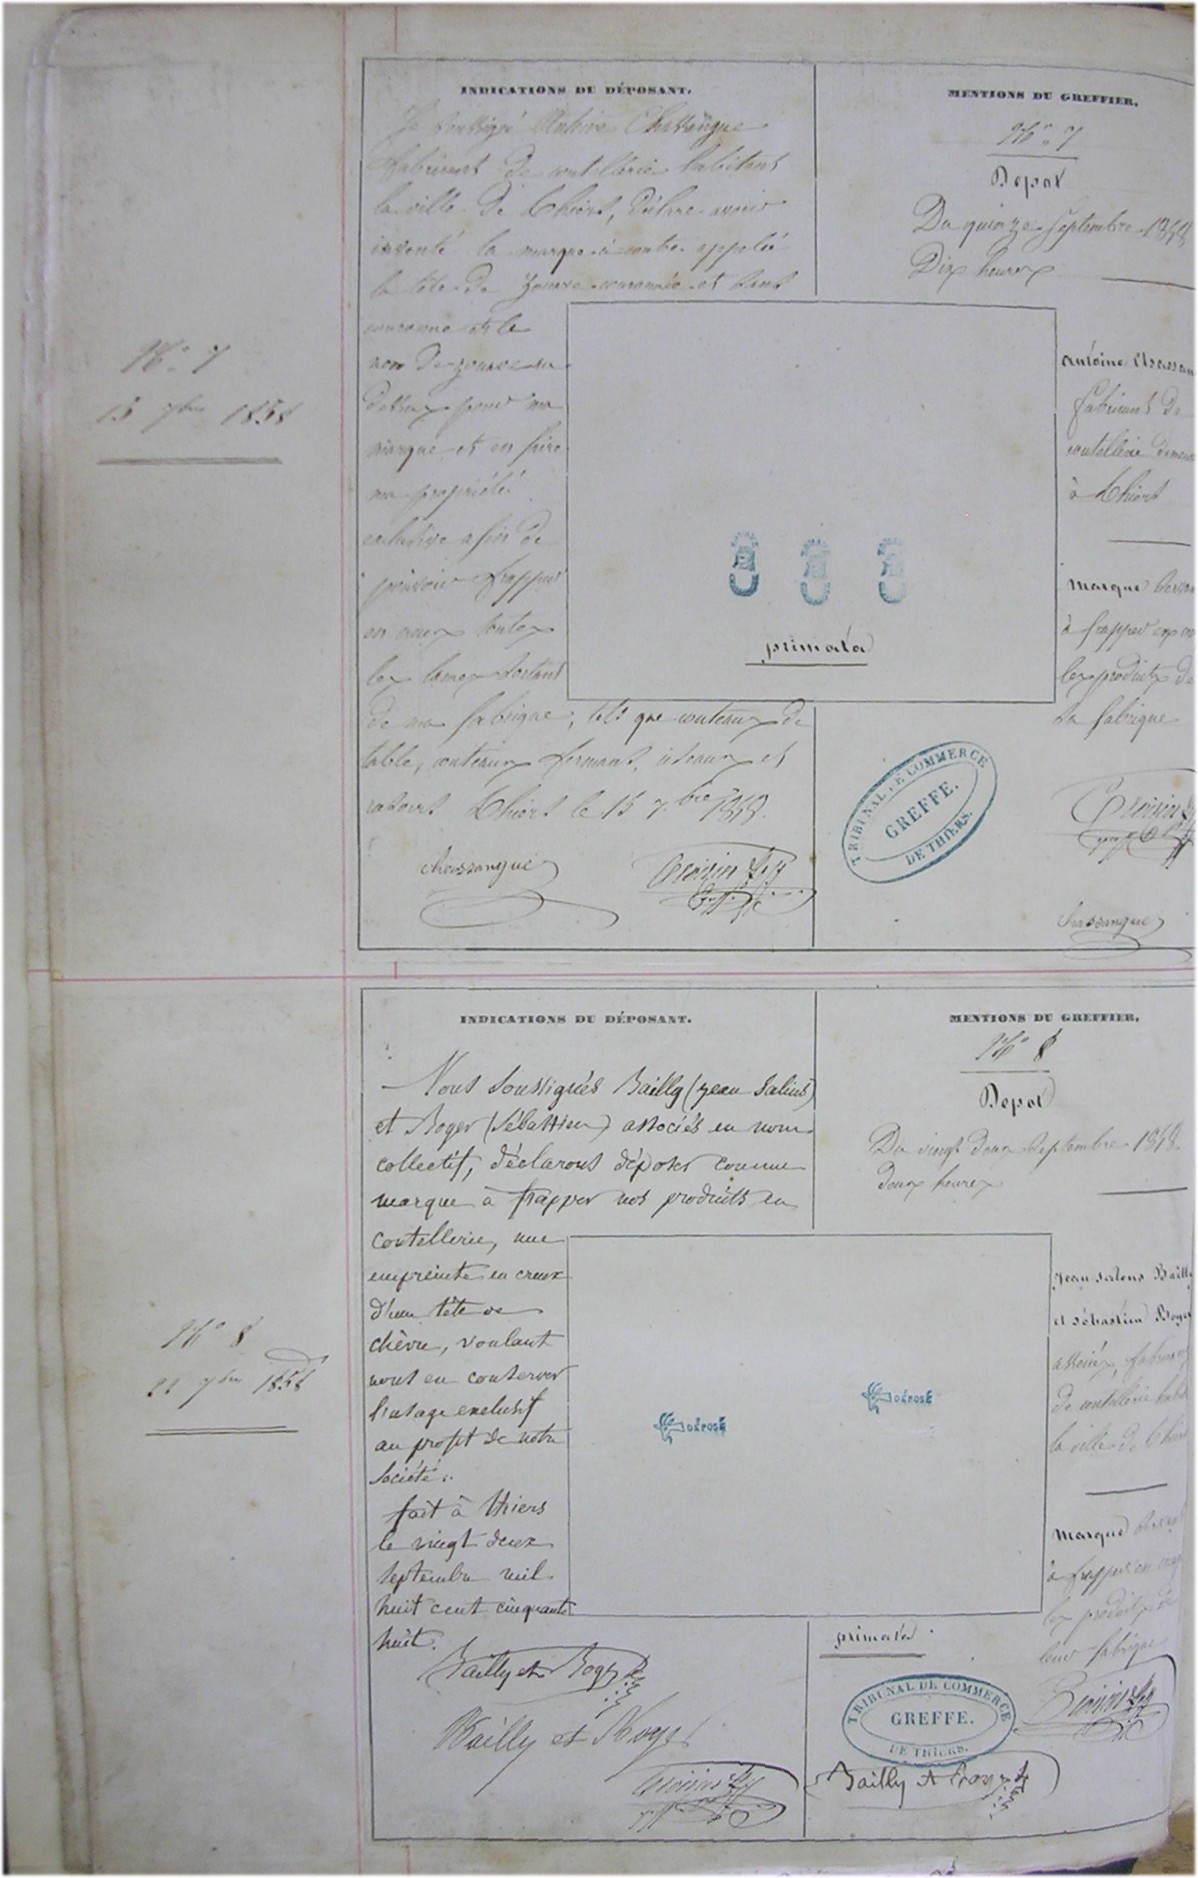 INDICATIONS DU DÉPOSANT.
Je soussigné Antoine Chassangue
fabricant de coutellerie habitant
la ville de Thiers, déclare avoir
inventé la marque ci contre appelée
la tête de zouave couronnée et
couronne et le
nom de zouave au
dessus pour ma
marque et en faire
ma propriété
exclusive afin de
pouvoir frapper
en creux toutes
les lames sortant
de ma fabrique, tels que couteaux de
table, couteaux fermant, ciseaux et
rasoirs Thiers le 15 7bre 1858.
chassangue
MENTIONS DU GREFFIER.
N° 7
Depot
Du quinze Septembre 1858
Dix heures
Antoine Chassan
fabricant de
coutellerie demeu
à Thiers
Marque
à frapper en
les produits de
sa fabrique
primata
TRIBUNAL DE COMMERCE
GREFFE.
DE THIERS.
chassangue
N° 7
15 7bre 1858
INDICATIONS DU DÉPOSANT.
Nous soussignés Bailly (Jean Salins)
et Boyer (Sébastien) associés en nom
collectif, déclarons déposer comme
marque à frapper nos produits en
coutellerie, une
empreinte en creux
d'une tête de
chèvre, voulant
nous en conserver
l'usage exclusif
au profit de notre
société.
fait à Thiers
le vingt deux
septembre mil
huit cent cinquante
huit.
Bailly et Boyer
Bailly et Boyer
MENTIONS DU GREFFIER.
N° 8
Depot
Du vingt deux Septembre 1858.
deux heures
DÉPOSÉ
DÉPOSÉ
Jean Salins Bailly
et sébastien Boyer
associés, fabricants
de coutellerie
la ville de Thiers
Marque
à frapper en
les produits de
leur fabrique
primata
TRIBUNAL DE COMMERCE
GREFFE.
DE THIERS.
Bailly et Boyer
N° 8
22 7bre 1858